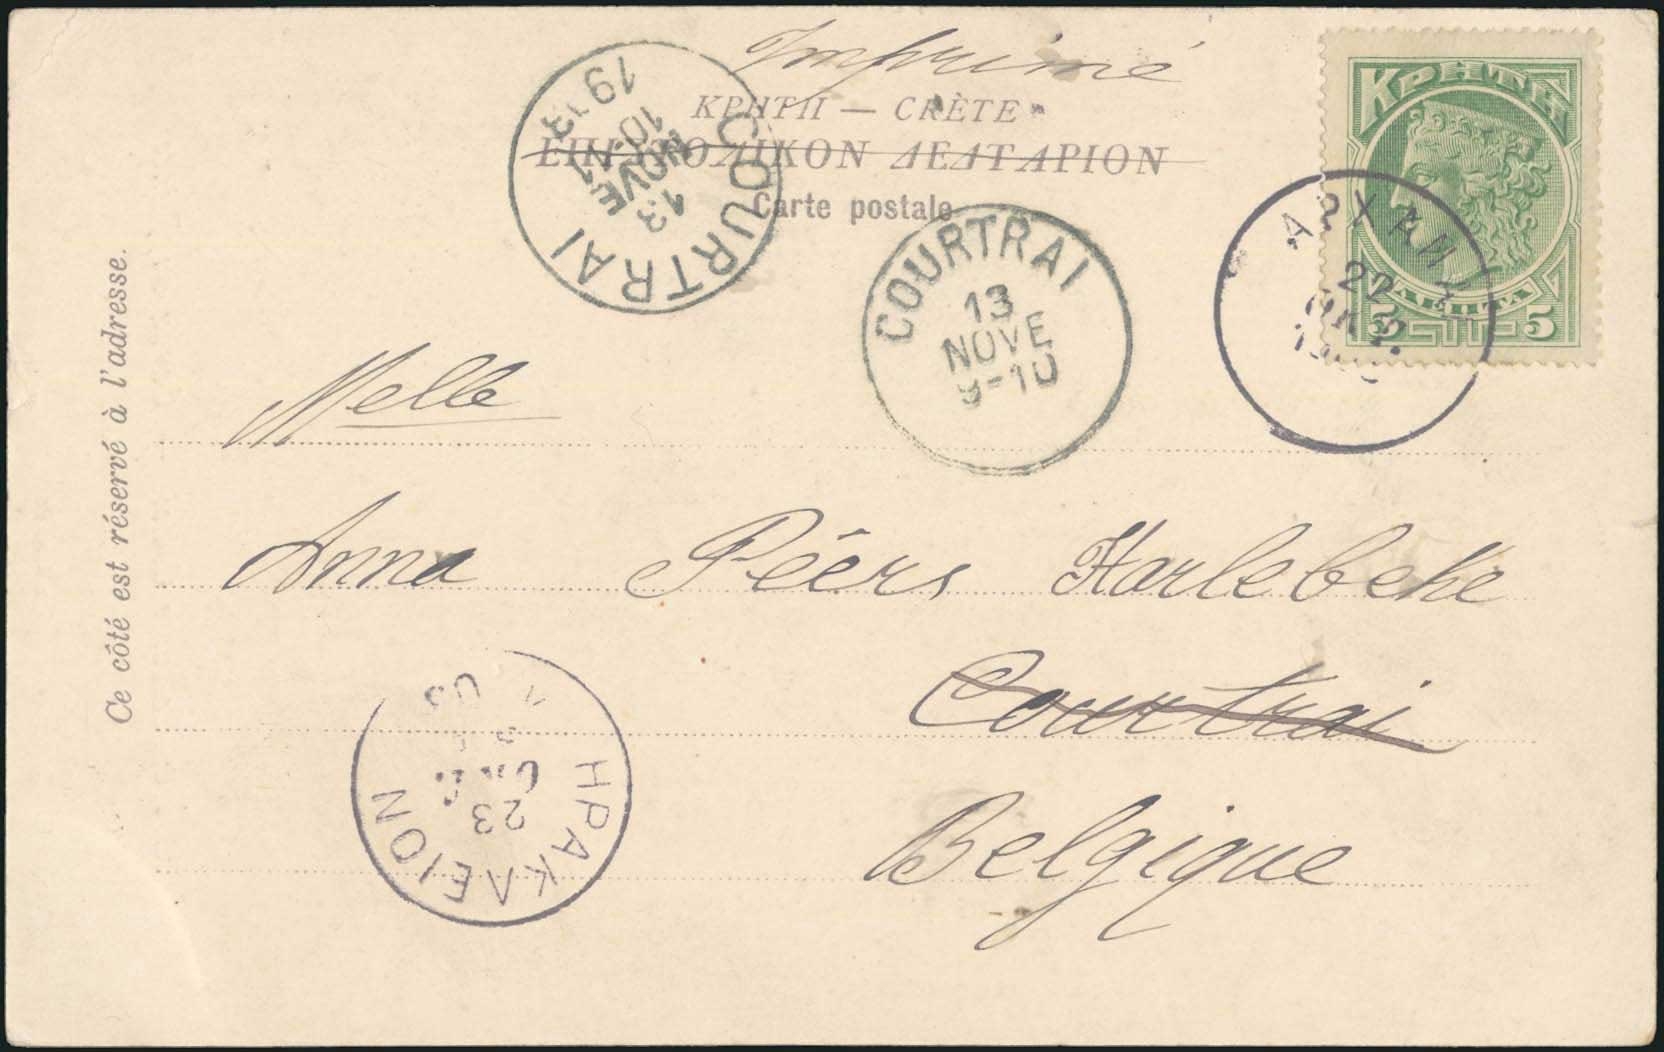 Imprimé
ΚΡΗΤΗ — CRÈTE
ΕΠΙΣΤΟΛΙΚΟΝ ΔΕΛΤΑΡΙΟΝ
Carte postale
ΚΡΗΤΗ
5 ΛΕΠΤΑ 5
COURTRAI
13
NOVE
10-11
1903
COURTRAI
13
NOVE
9-10
ΑΡΧΑΝ
22
ΟΚΤ.
Ce côté est réservé à l'adresse.
Melle
Anna Péérs Harlebeke
Courtrai
Belgique
ΗΡΑΚΛΕΙΟΝ
23
ΟΚΤ.